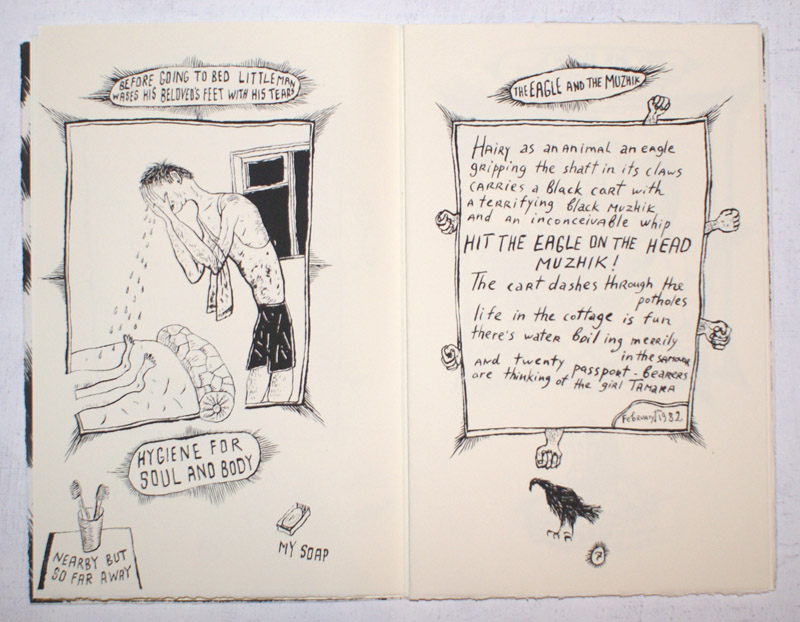 BEFORE GOING TO BED LITTLEMAN
WASES HIS BELOVED'S FEET WITH HIS TEARS
HYGIENE FOR
SOUL AND BODY
NEARBY BUT
SO FAR AWAY
MY SOAP
THE EAGLE AND THE MUZHIK
HAIRY as an animal an eagle
gripping the shaft in its claws
CARRIES a Black cart with
a terrifying black muzhik
and an inconceivable whip
HIT THE EAGLE ON THE HEAD
MUZHIK!
The cart dashes through the
potholes
life in the cottage is fun
there's water boiling merrily
in the SAMOVAR
and twenty passport-BEARERS
are thinking of the girl TAMARA
February 1982
7